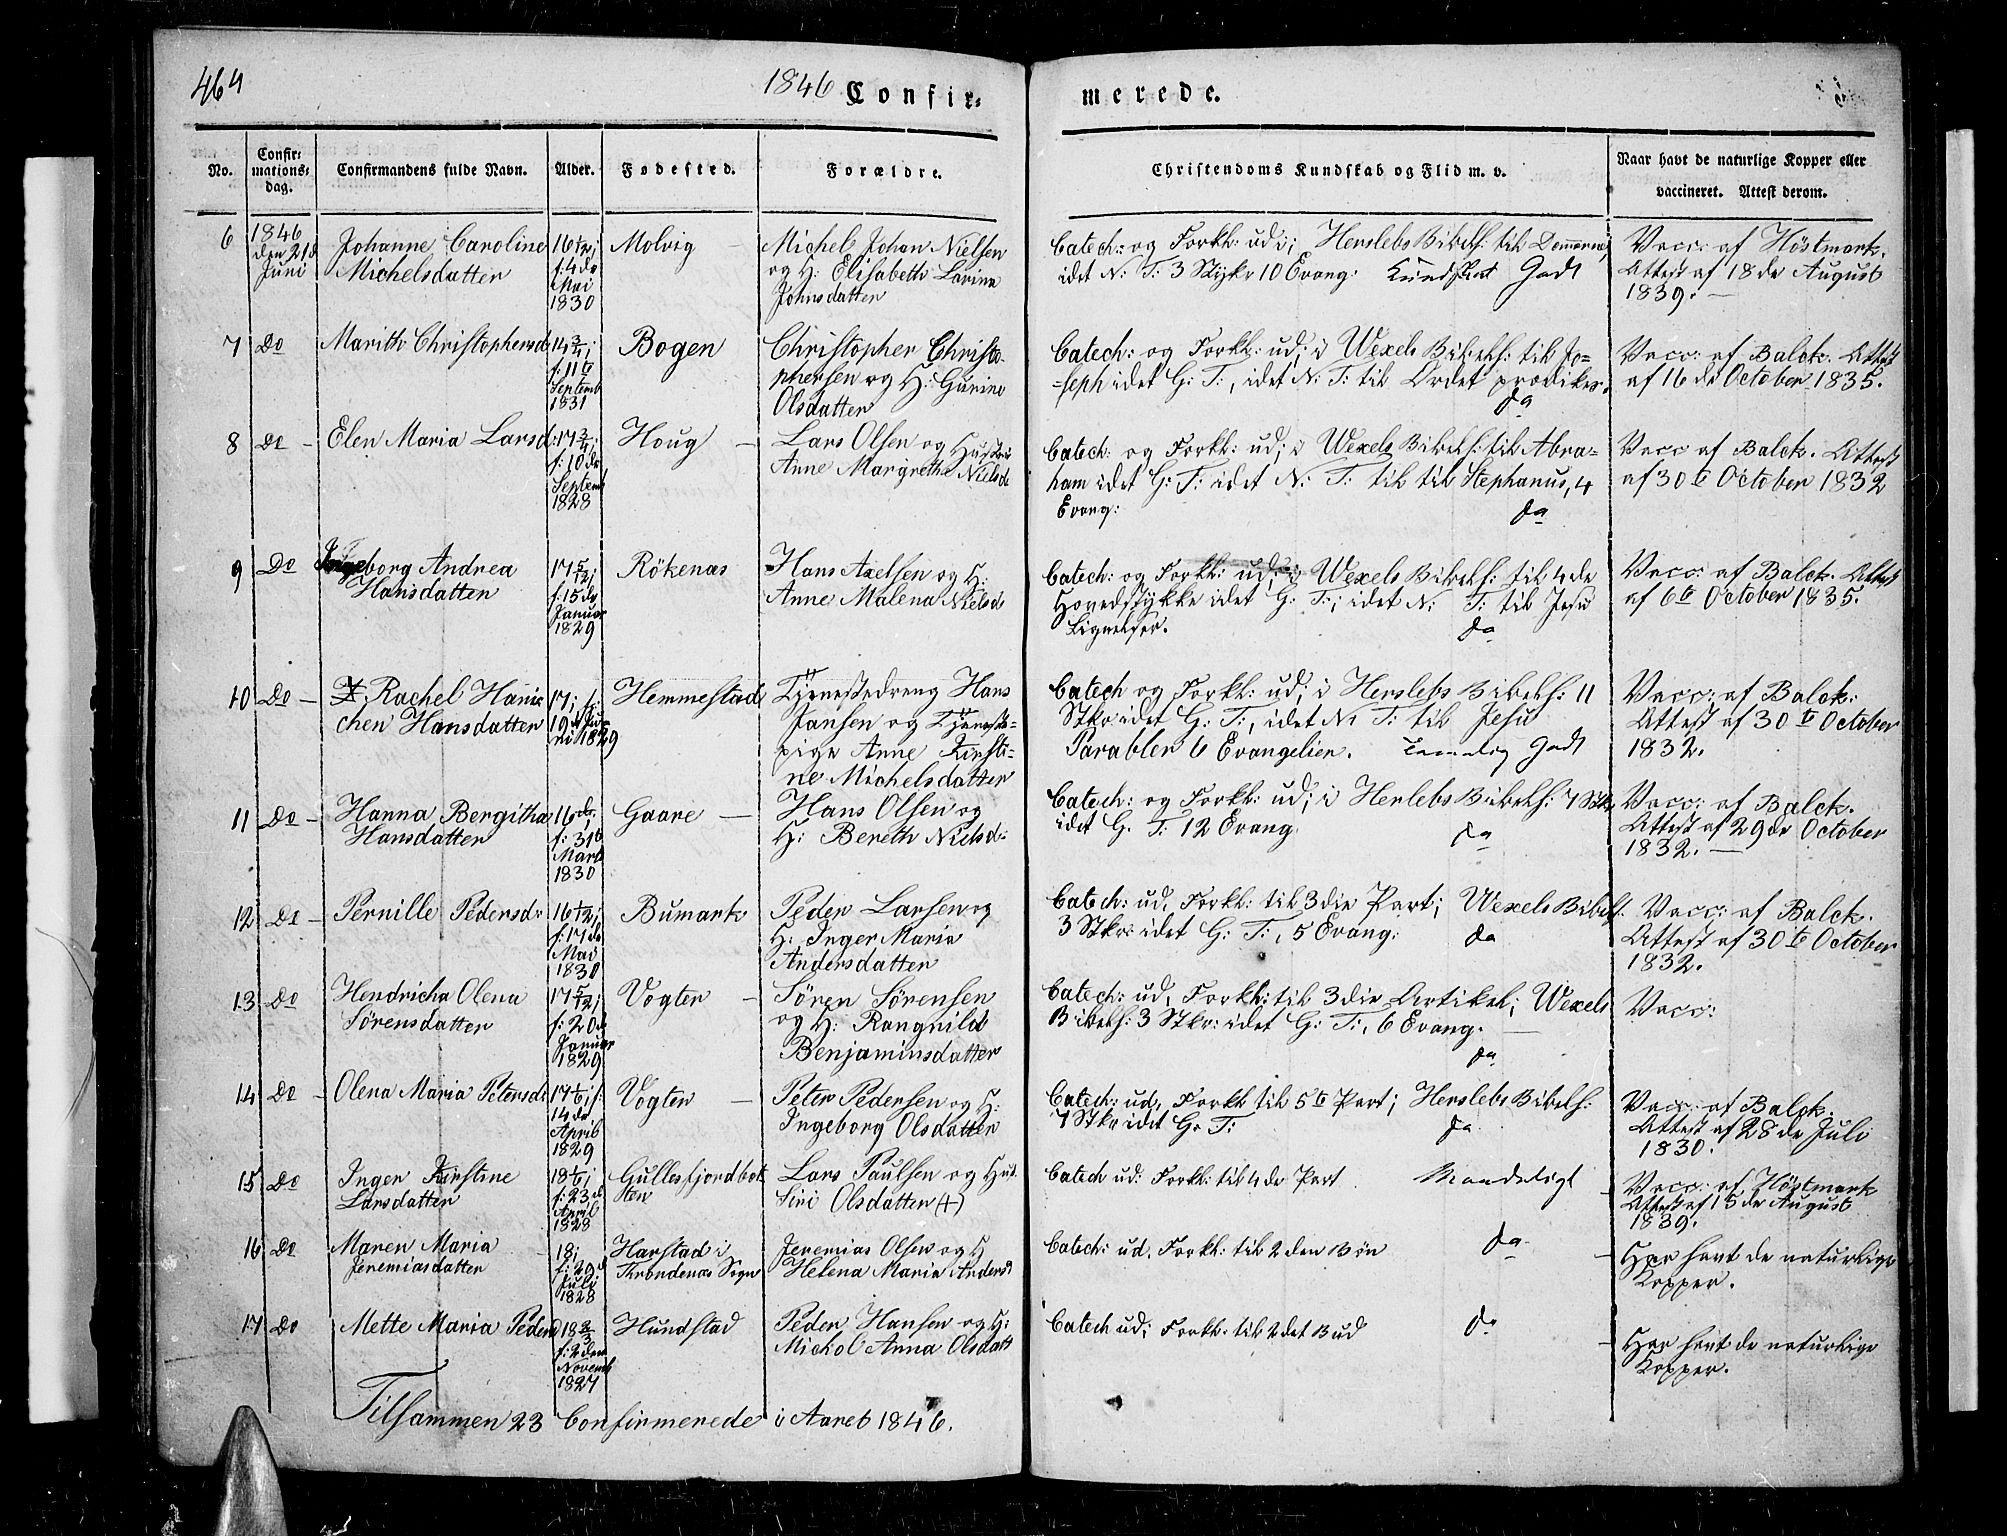 464
1846 Confir-
merede.
No.
Confir-
mations-
dag.
Confirmandens fulde Navn.
Alder.
Fødested.
Forældre.
Christendoms Kundskab og Flid m. v.
Naar havt de naturlige Kopper eller
vaccineret. Attest derom.
6
1846
den 21d
Juni
Johanne Caroline
Michelsdatter
16 1/12;
f: 4de
Mai
1830
Molvig
Michel Johan Nielsen
og H: Elisabeth Lovina
Johnsdatter
Catech: og Forkl: ud; i Herslebs Bibelh: til Dommerne,
idet N: T: 3 Stykr 10 Evang: Kundskab Godt
Vacc: af Høstmark.
Attest af 18de August
1839.
7
Do
Marith Christophersd
14 3/4;
f: 11te
Septemb
1831
Bogen
Christopher Christo-
phersen og H: Gurine
Olsdatter
Catech: og Forkl: ud; i Wexels Bibelh: til Jo-
-seph idet G: T:, idet N: T: til Ordet prædikes.
da
Vacc: af Balck. Attest
af 16de October 1835.
8
Do
Elen Maria Larsd:
17 3/4;
f: 10de
Septemb
1828
Houg
Lars Olsen og Hustru
Anne Margrethe Nielsd
Catech: og Forkl: ud; i Wexels Bibelh: til Abra-
ham idet G: T: idet N: T: til til Stephanus, 4
Evang:
da
Vacc af Balck. Attest
af 30te October 1832
9
Do
Ingeborg Andrea
Hansdatter
17 5/12;
f: 15de
Januar
1829
Rökenæs
Hans Axelsen og H:
Anne Malena Nielsd
Catech: og Forkl: ud; i Wexels Bibelh: til 4de
Hovedstykke idet G: T:; idet N: T: til Jesu
Lignelser.
da
Vacc: af Balck. Attest
af 6te October 1835.
10
Do
Rachel Hanni-
chen Hansdatter
17; f:
19d Ju-
ni 1829
Hemmestad
Tjenestedreng Hans
Jansen og Tjeneste-
pige Anne Kirsti-
ne Michelsdatter
Catech og Forkl: ud; i Herslebs Bibelh: 11
Stkr idet G: T:, idet N: T: til Jesu
Parabler 6 Evangelier. Temmelig Godt
Vacc: af Balck:
Attest af 30te October
1832.
11
Do
Hanna Bergitha
Hansdatter
16
f: 31te
Marts
1830
Gaare
Hans Olsen og
H: Bereth Nielsd:
Catech: og Forkl: ud; i Herlebs Bibelh: 7 Stkr
idet G. T: 12 Evang:
da
Vacc: af Balck.
Attest af 29de October
1832.
12
Do
Pernille Pedersdr
16 1/12;
f: 17de
Mai
1830
Bumark
Peder Larsen og
H: Inger Maria
Andersdatter
Catech: ud, Forkl: til 3die Part; Wexels Bibelh:
3 Stkr: idet G: T:, 5 Evang:
da
Vacc: af Balck.
Attest af 30te October
1832.
13
Do
Hendricha Olena
Sørensdatter
17 5/12;
f: 20d
Januar
1829
Vogter
Søren Sørensen
og H: Rangnild
Benjaminsdatter
Catech: ud, Forkl: til 3die Artikel; Wexels
Bibelh: 3 Stkr: idet G: T:, 6 Evang.
da
Vacc:
14
Do
Olena Maria Petersdr
17 1/6; f:
14de
April
1829
Vogter
Peter Pedersen og H:
Ingeborg Olsdatter
Catech: ud, Forkl til 5te Part; Herslebs Bibelh:
7 Stkr idet G. T:
da
Vacc: af Balck.
Attest af 28de Juli
1830.
15
Do
Inger Kirstine
Larsdatter
18 1/6;
f: 23d
April
1828
Gullesfjordbot-
ten
Lars Paulsen og Hust.
Siri Olsdatter (+)
Catech ud: Forkl: til 4de Part Maadeligt
Vacc: af Høstmark
Attest af 15de August
1839.
16
Do
Maren Maria
Jeremiasdatter
18;
f: 29d
Juli
1828
Harstad i
Throndenæs Sogn
Jeremias Olsen og H
Helena Maria Andersd
Catech: ud, Forkl: til 2den Bøn
da
Har havt de naturlige
Kopper.
17
Do
Mette Maria Peders
18 2/3
f: 2den
Novemb
1827
Hundstad
Peder Hansen og H:
Mickol Anna Olsdatt
Catech ud; Forkl: til 2det Bud
da
Har havt de naturlige
Kopper.
Tilsammen 23 Confirmerede i Aaret 1846.